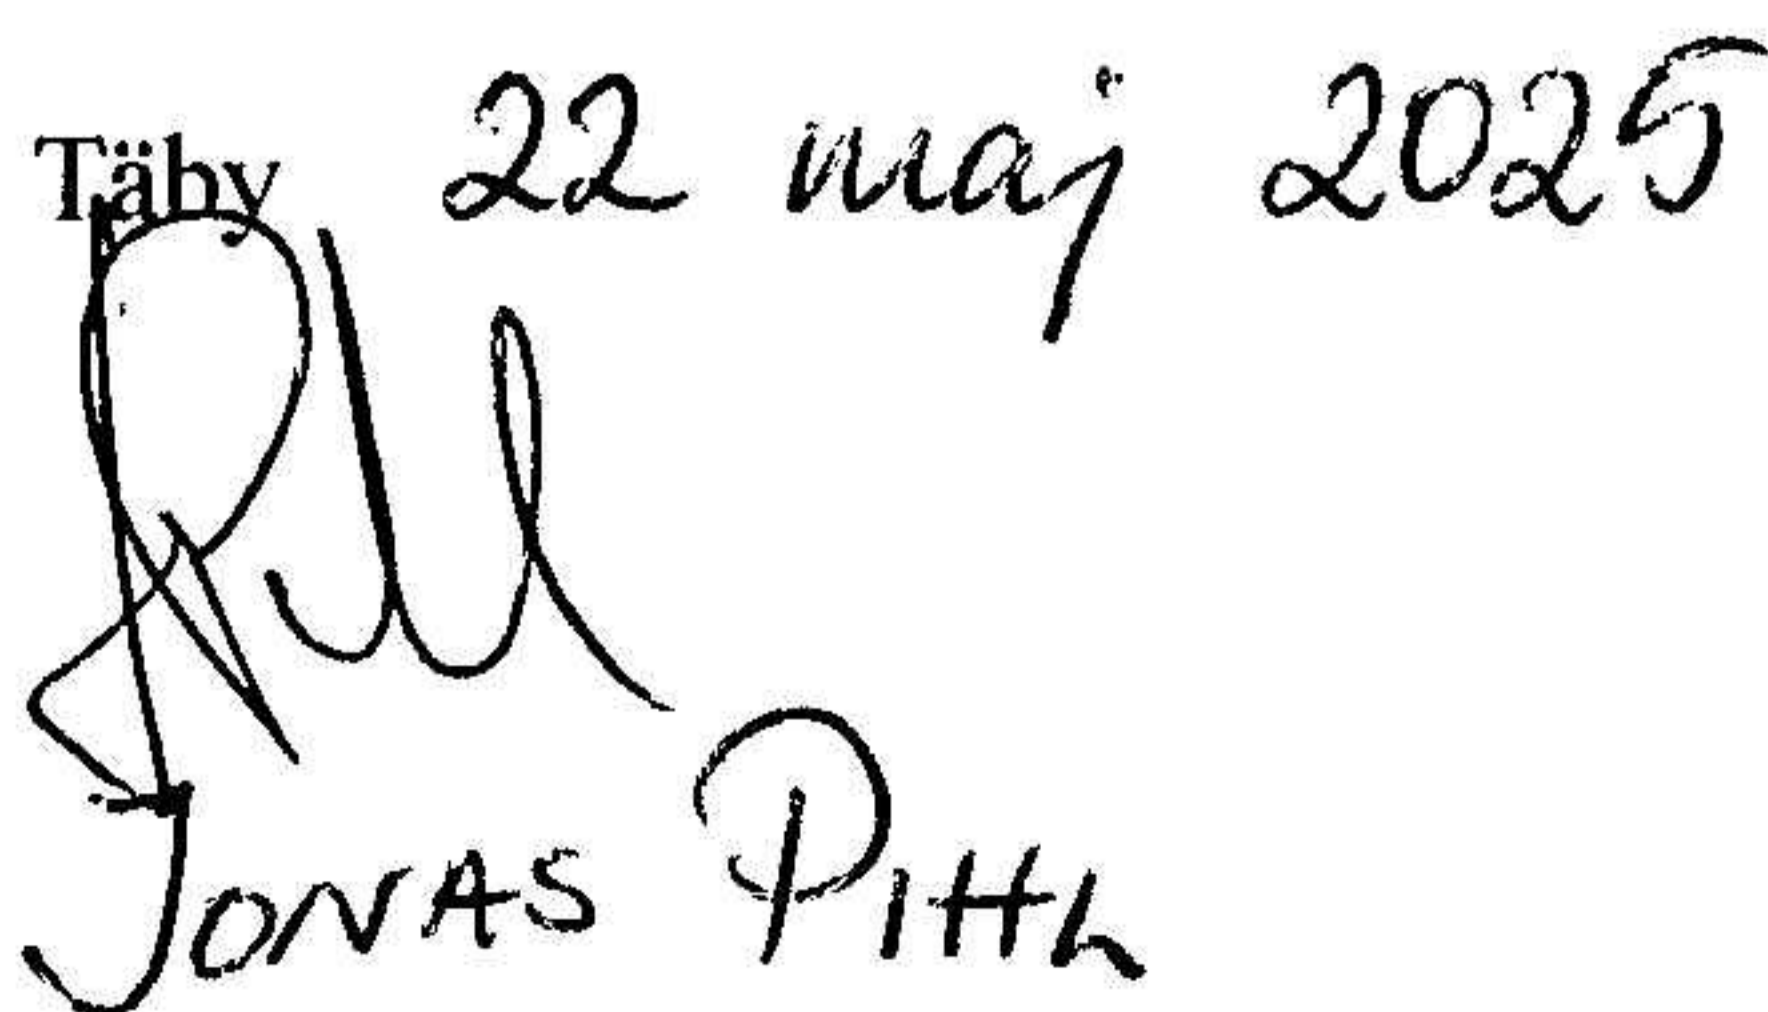 Täby 22 maj 2025
JONAS PIHL